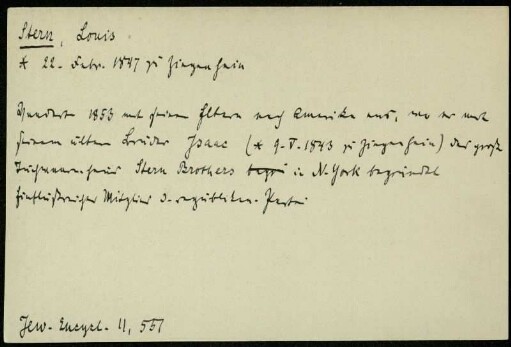 Stern, Louis
* 22. Febr. 1847 zu Ziegenhain
Wandert 1853 mit seinen Eltern nach Amerika aus, wo er mit
seinem ält. Bruder Isaac (* 9.V.1843 zu Ziegenhain) das große
Stern Brothers in N.York begründet
Einflußreicher Mitglied d. republikan. Partei
Jew. Encycl. 11, 551